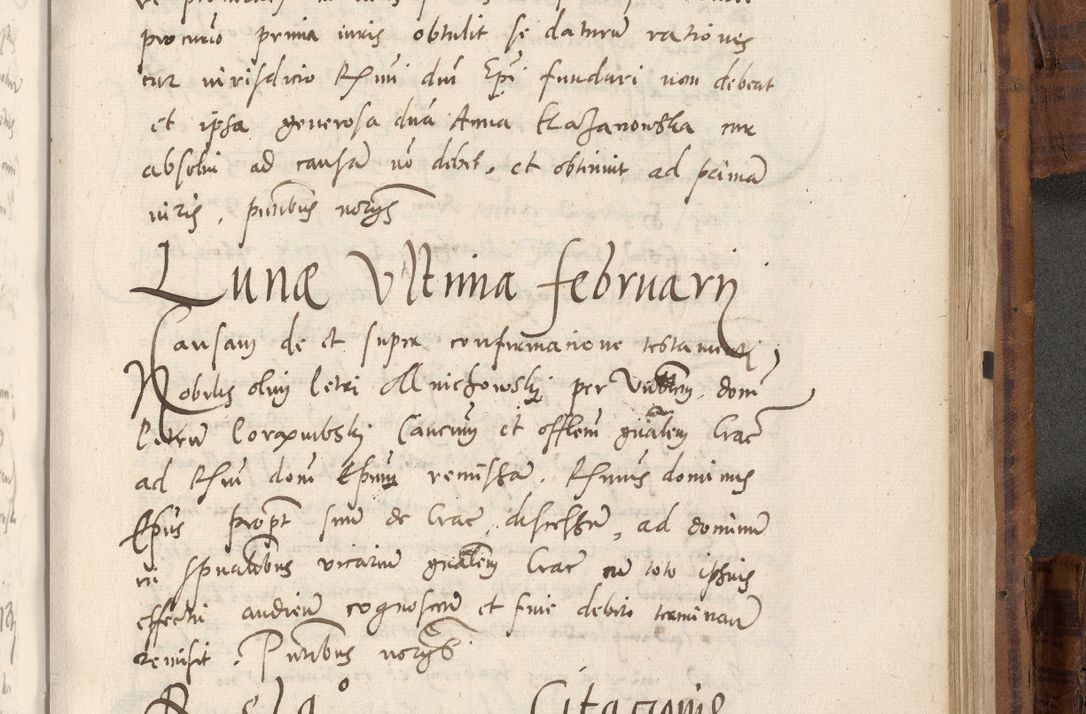 procurio prima iuris obtulit se daturu rationes
cur iurisdicio Rsmi dni Epi fundari non debeat
et ipsa generosa dna Anna Kazanowska cur
absolui ad causam no debet, et obtinuit ad primam
iuris, pntibus notgs
Lunæ Vltima februarij
Causam de et super confirmacione testamenti
Nobilis olim Petri Mnichowskj per Vnbtem dom
Petru Porembskj Cancum et offlem gnalem Crac
ad Rsm dom Epum remissam. Rsmus dominus
Epus propt sue de Crac discessu, ad dominu
in spualibus vicariu gnalem Crac cu toto ipsius
effectu audien cognoscen et fine debito terminan
remisit. Pntibus notgs
Citacionis